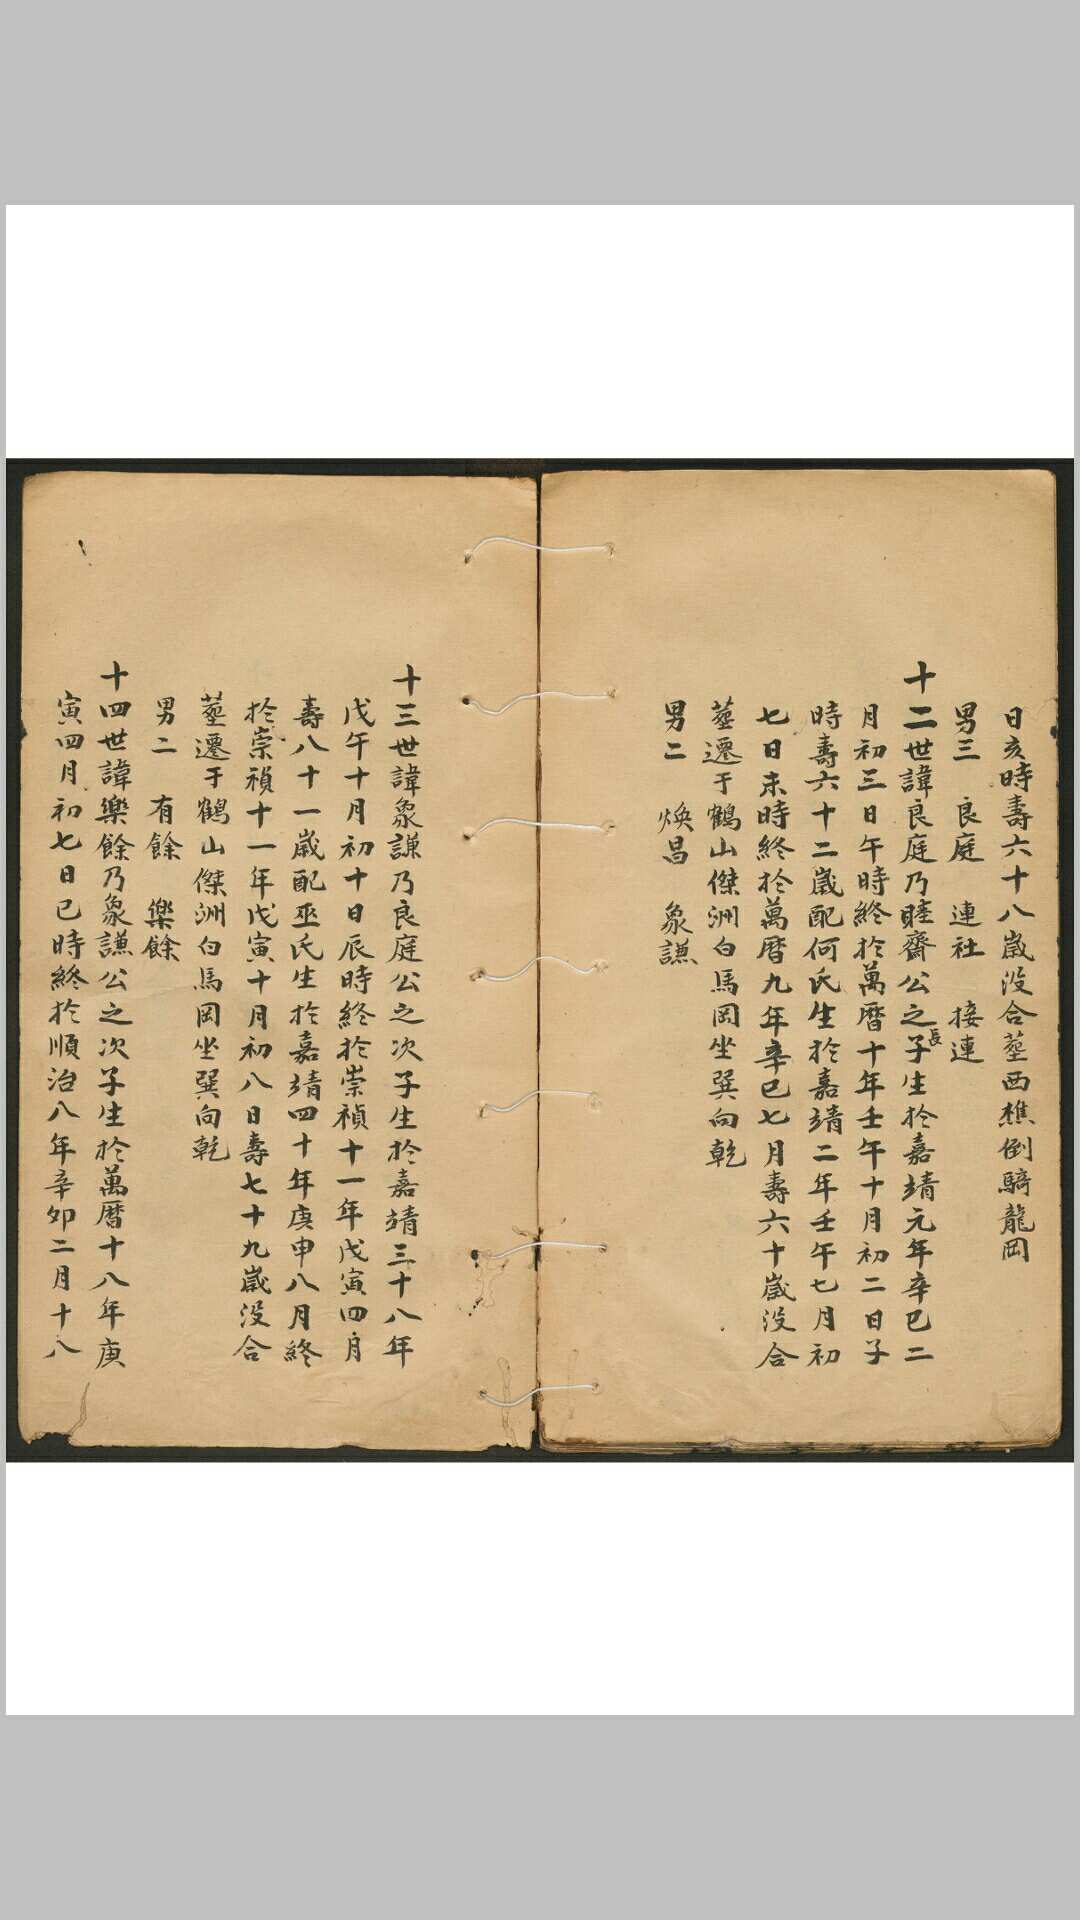 日亥時壽六十八歲没合塟西樵倒騎龍岡
男三 良庭 連社 接連
十二世諱良庭乃睦齋公之長子生於嘉靖元年辛巳二
月初三日午時終於萬曆十年壬午十月初二日子
時壽六十二歲配何氏生於嘉靖二年壬午七月初
七日未時終於萬曆九年辛巳七月壽六十歲没合
塟遷于鶴山傑洲白馬岡坐巽向乾
男二 煥昌 象謙
十三世諱象謙乃良庭公之次子生於嘉靖三十八年
戊午十月初十日辰時終於崇禎十一年戊寅四月
壽八十一歲配巫氏生於嘉靖四十年庚申八月終
於崇禎十一年戊寅十月初八日壽七十九歲没合
塟遷于鶴山傑洲白馬岡坐巽向乾
男二 有餘 樂餘
十四世諱樂餘乃象謙公之次子生於萬曆十八年庚
寅四月初七日巳時終於順治八年辛卯二月十八